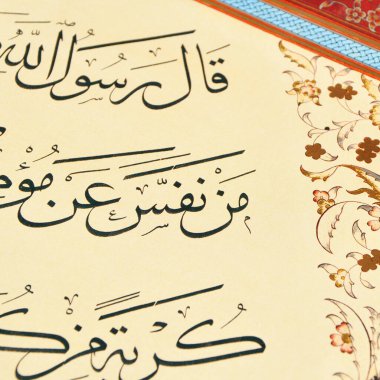 قَالَ رَسُولُ اللّه
مَنْ نَفَّسَ عَنْ مُؤْم
كُرْبَةً مِنْ ك